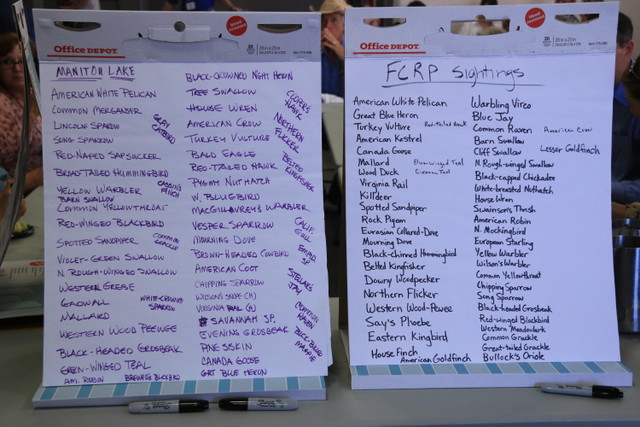 Office DEPOT
MANITOU LAKE
AMERICAN WHITE PELICAN
COMMON MERGANSER
LINCOLN SPAROW
GRAY CATBIRD
SONG SPARROW
RED-NAPED SAPSUCKER
BROAD-TAILED HUMMINGBIRD
YELLOW WARBLER
CASSIN'S FINCH
BARN SWALLOW
COMMON YELLOWTHROAT
RED-WINGED BLACKBIRD
SPOTTED SANDPIPER
COMMON GRACKLE
VIOLET-GREEN SWALLOW
N. ROUGH-WINGED SWALLOW
WESTERN GREBE
GADWALL
WHITE-CROWNED SPARROW
MALLARD
WESTERN WOOD PEEWEE
BLACK-HEADED GROSBEAK
GREEN-WINGED TEAL
AM. ROBIN
BREWER'S BLCKBRD
BLACK-CROWNED NIGHT HERON
TREE SWALLOW
HOUSE WREN
COOPER'S HAWK
AMERICAN CROW
TURKEY VULTURE
NORTHERN FLICKER
BALD EAGLE
RED-TAILED HAWK
BELTED KINGFISHER
PYGMY NUTHATCH
W. BLUEBIRD
MACGILLIVREY'S WARBLER
VESPER SPARROW
CALIF. GULL
MOURNING DOVE
BROWN-HEADED COWBIRD
AMERICAN COOT
CHIPPING SPARROW
STELLAR'S JAY
WILSON'S SNIPE (H)
VIRGINIA RAIL (H)
COMMON RAVEN
SAVANNAH SP.
EVENING GROSBEAK
BLACK-BILLED MAGPIE
PINE SISKIN
CANADA GOOSE
GRT BLUE HERON
Office DEPOT
FCRP Sightings
American White Pelican
Great Blue Heron
Turkey Vulture
Red-tailed Hawk
American Kestrel
Canada Goose
Mallard
Blue-Winged Teal
Wood Duck
Cinnamon Teal
Virginia Rail
Killdeer
Spotted Sandpiper
Rock Pigeon
Eurasian Collared-Dove
Mourning Dove
Black-chinned Hummingbird
Belted Kingfisher
Downy Woodpecker
Northern Flicker
Western Wood-Pewee
Say's Phoebe
Eastern Kingbird
House Finch
American Goldfinch
Warbling Vireo
Blue Jay
Common Raven
American Crow
Barn Swallow
Cliff Swallow
Lesser Goldfinch
N. Rough-winged Swallow
Black-capped Chickadee
White-breasted Nuthatch
House Wren
Swainson's Thrush
American Robin
N. Mockingbird
European Starling
Yellow Warbler
Wilson's Warbler
Common Yellowthroat
Chipping Sparrow
Song Sparrow
Black-headed Grosbeak
Red-winged Blackbird
Western Meadowlark
Common Grackle
Great-tailed Grackle
Bullock's Oriole